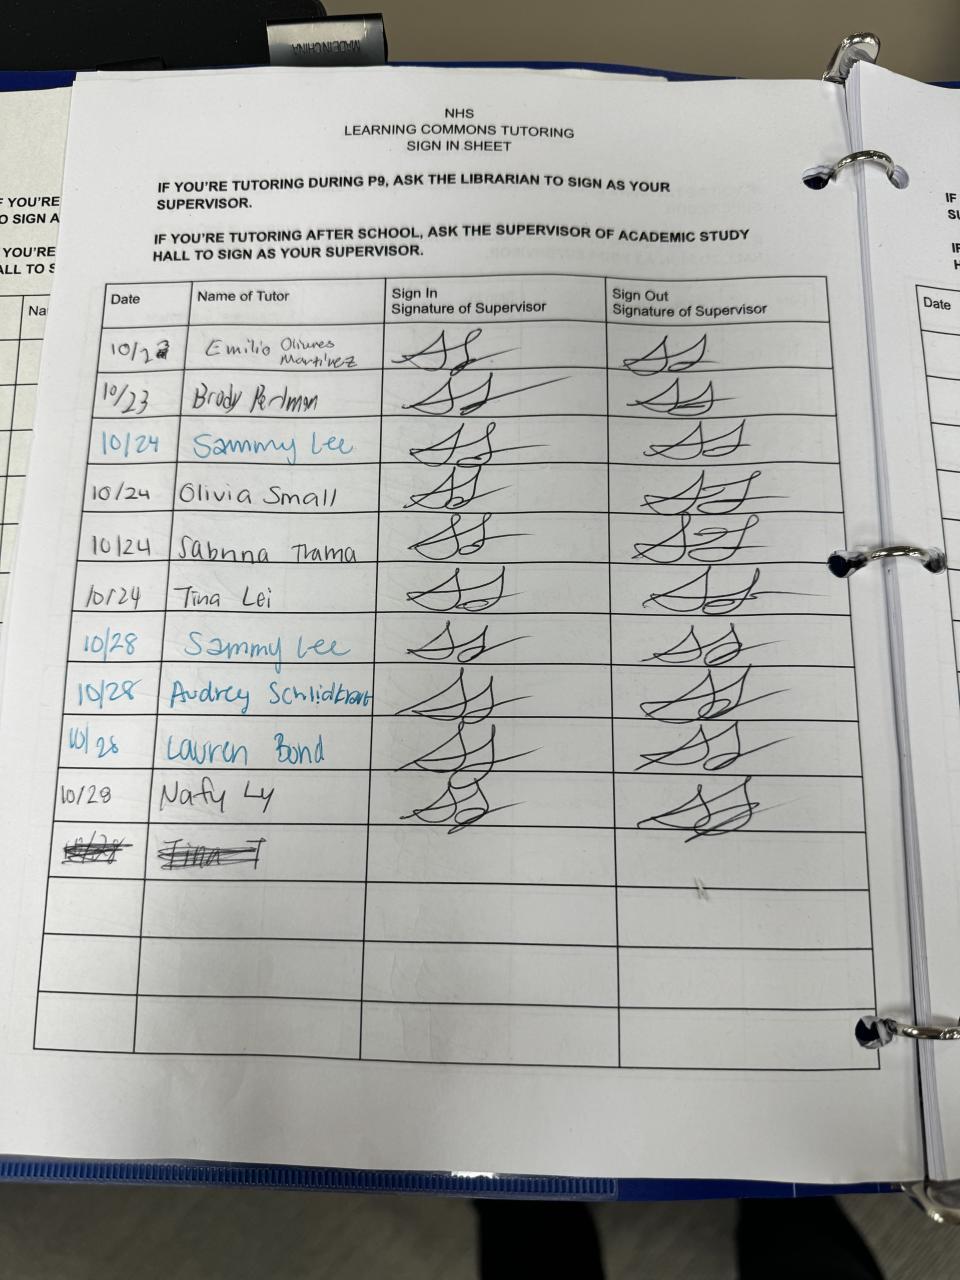 MADE IN CHINA
NHS
LEARNING COMMONS TUTORING
SIGN IN SHEET
IF YOU'RE TUTORING DURING P9, ASK THE LIBRARIAN TO SIGN AS YOUR
SUPERVISOR.
IF YOU'RE TUTORING AFTER SCHOOL, ASK THE SUPERVISOR OF ACADEMIC STUDY
HALL TO SIGN AS YOUR SUPERVISOR.
Date Name of Tutor Sign In Sign Out
Signature of Supervisor Signature of Supervisor
10/23 Emilio Olivares
Martinez
10/23 Brody Perlman
10/24 Sammy Lee
10/24 Olivia Small
10/24 Sabrina Trama
10/24 Tina Lei
10/28 Sammy Lee
10/28 Audrey Schlidtkraut
10/28 Lauren Bond
10/28 Nafy Ly
10/28 Tina T
YOU'RE
SIGN A
YOU'RE
ALL TO S
Na
IF
IF
Date